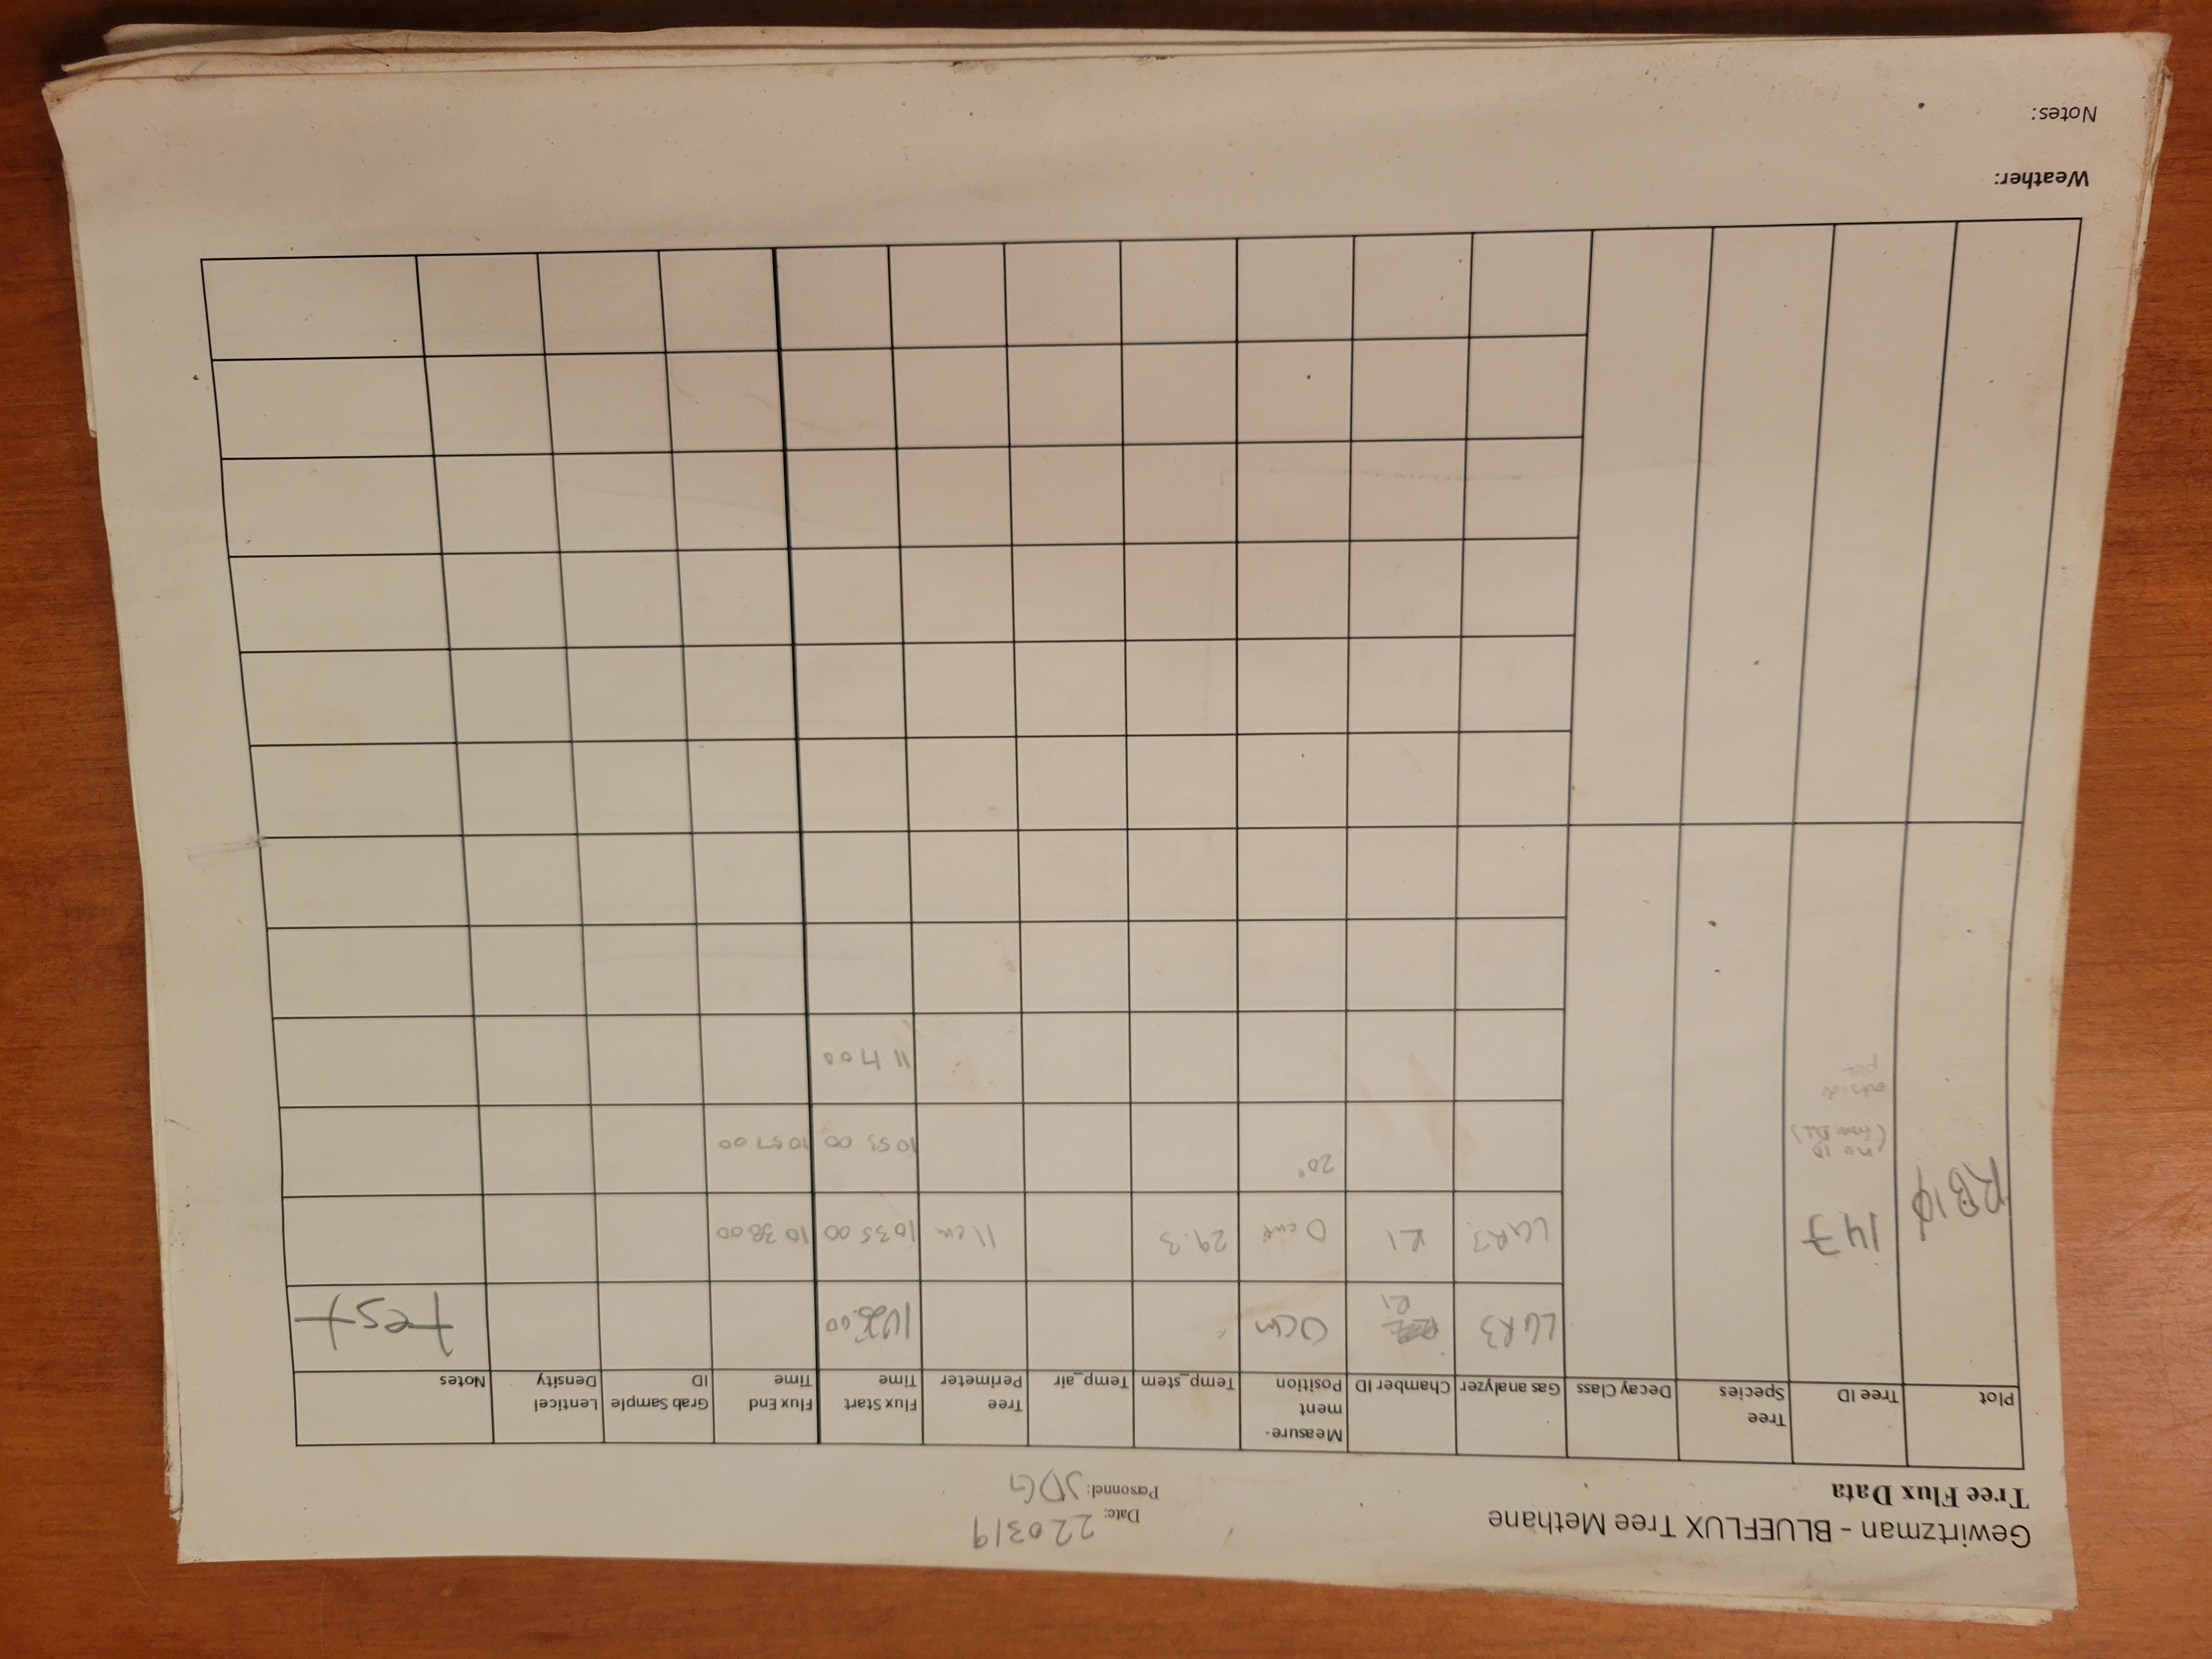 Gewirtzman - BLUEFLUX Tree Methane
Tree Flux Data
Date: 220319
Personnel: JDG
Plot Tree ID Tree Species Decay Class Gas analyzer Chamber ID Measure-ment Position Temp_stem Temp_air Tree Perimeter Flux Start Time Flux End Time Grab Sample ID Lenticel Density Notes
LGR3 R1 0cm test
RB10 147 LGR3 R1 0cm 29.3 11cm 103500 103800
(no ID from DL) 20" 105300 105700
outside plot
Weather:
Notes: